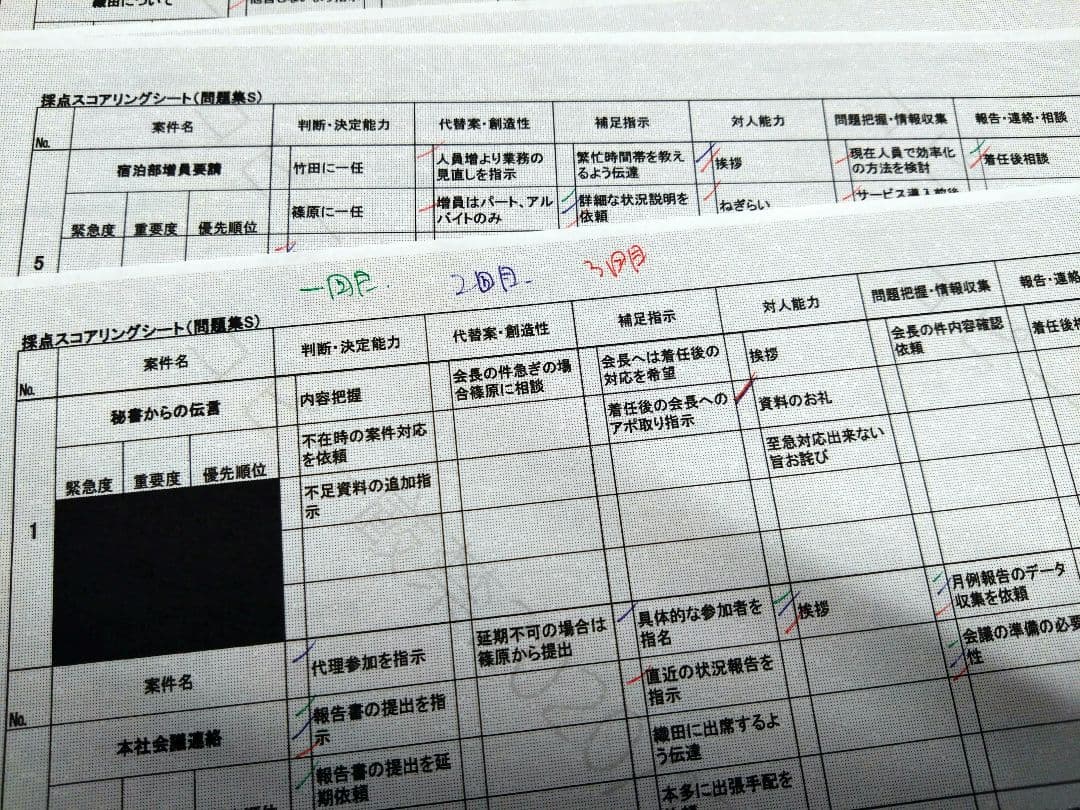 織田について
採点スコアリングシート(問題集S)
No.
案件名
判断・決定能力
代替案・創造性
補足指示
対人能力
問題把握・情報収集
報告・連絡・相談
宿泊部増員要請
竹田に一任
人員増より業務の
見直しを指示
繁忙時間帯を教え
るよう伝達
挨拶
現在人員で効率化
の方法を検討
着任後相談
緊急度
重要度
優先順位
篠原に一任
増員はパート、アル
バイトのみ
詳細な状況説明を
依頼
ねぎらい
5
一回目.
2回目.
3回目
採点スコアリングシート(問題集S)
No.
案件名
判断・決定能力
代替案・創造性
補足指示
対人能力
問題把握・情報収集
報告・連絡
秘書からの伝言
内容把握
会長の件急ぎの場
合篠原に相談
会長へは着任後の
対応を希望
挨拶
会長の件内容確認
依頼
不在時の案件対応
を依頼
着任後の会長への
アポ取り指示
資料のお礼
緊急度
重要度
優先順位
不足資料の追加指
示
至急対応出来ない
旨お詫び
1
No.
案件名
代理参加を指示
延期不可の場合は
篠原から提出
具体的な参加者を
指名
挨拶
月例報告のデータ
収集を依頼
本社会議連絡
報告書の提出を指
示
直近の状況報告を
指示
会議の準備の必要
性
報告書の提出を延
期依頼
織田に出席するよ
う伝達
本多に出張手配を